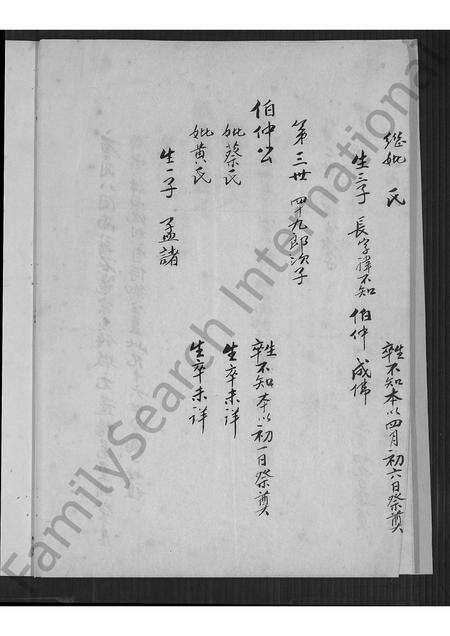 繼妣 氏 生卒不知本以四月初六日祭奠
生三子 長字諱不知 伯仲 成
第三世 四十九郎次子
伯仲公 生卒不知本以初一日祭奠
妣蔡氏 生卒未詳
妣黄氏 生卒未詳
生一子 孟諸
FamilySearch International